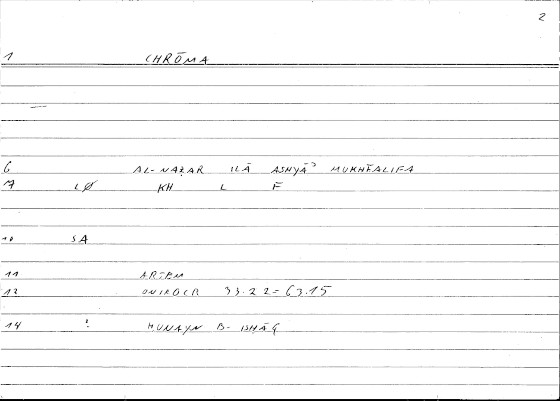 2
1 CHRŌMA
6 AL-NAẒAR ILĀ ASHYĀʾ MUKHTALIFA
7 LØ KH L F
10 SA
11 ARTEM
12 ONIROCR 33.22-63.15
14 : ḤUNAYN B- ISḤĀQ